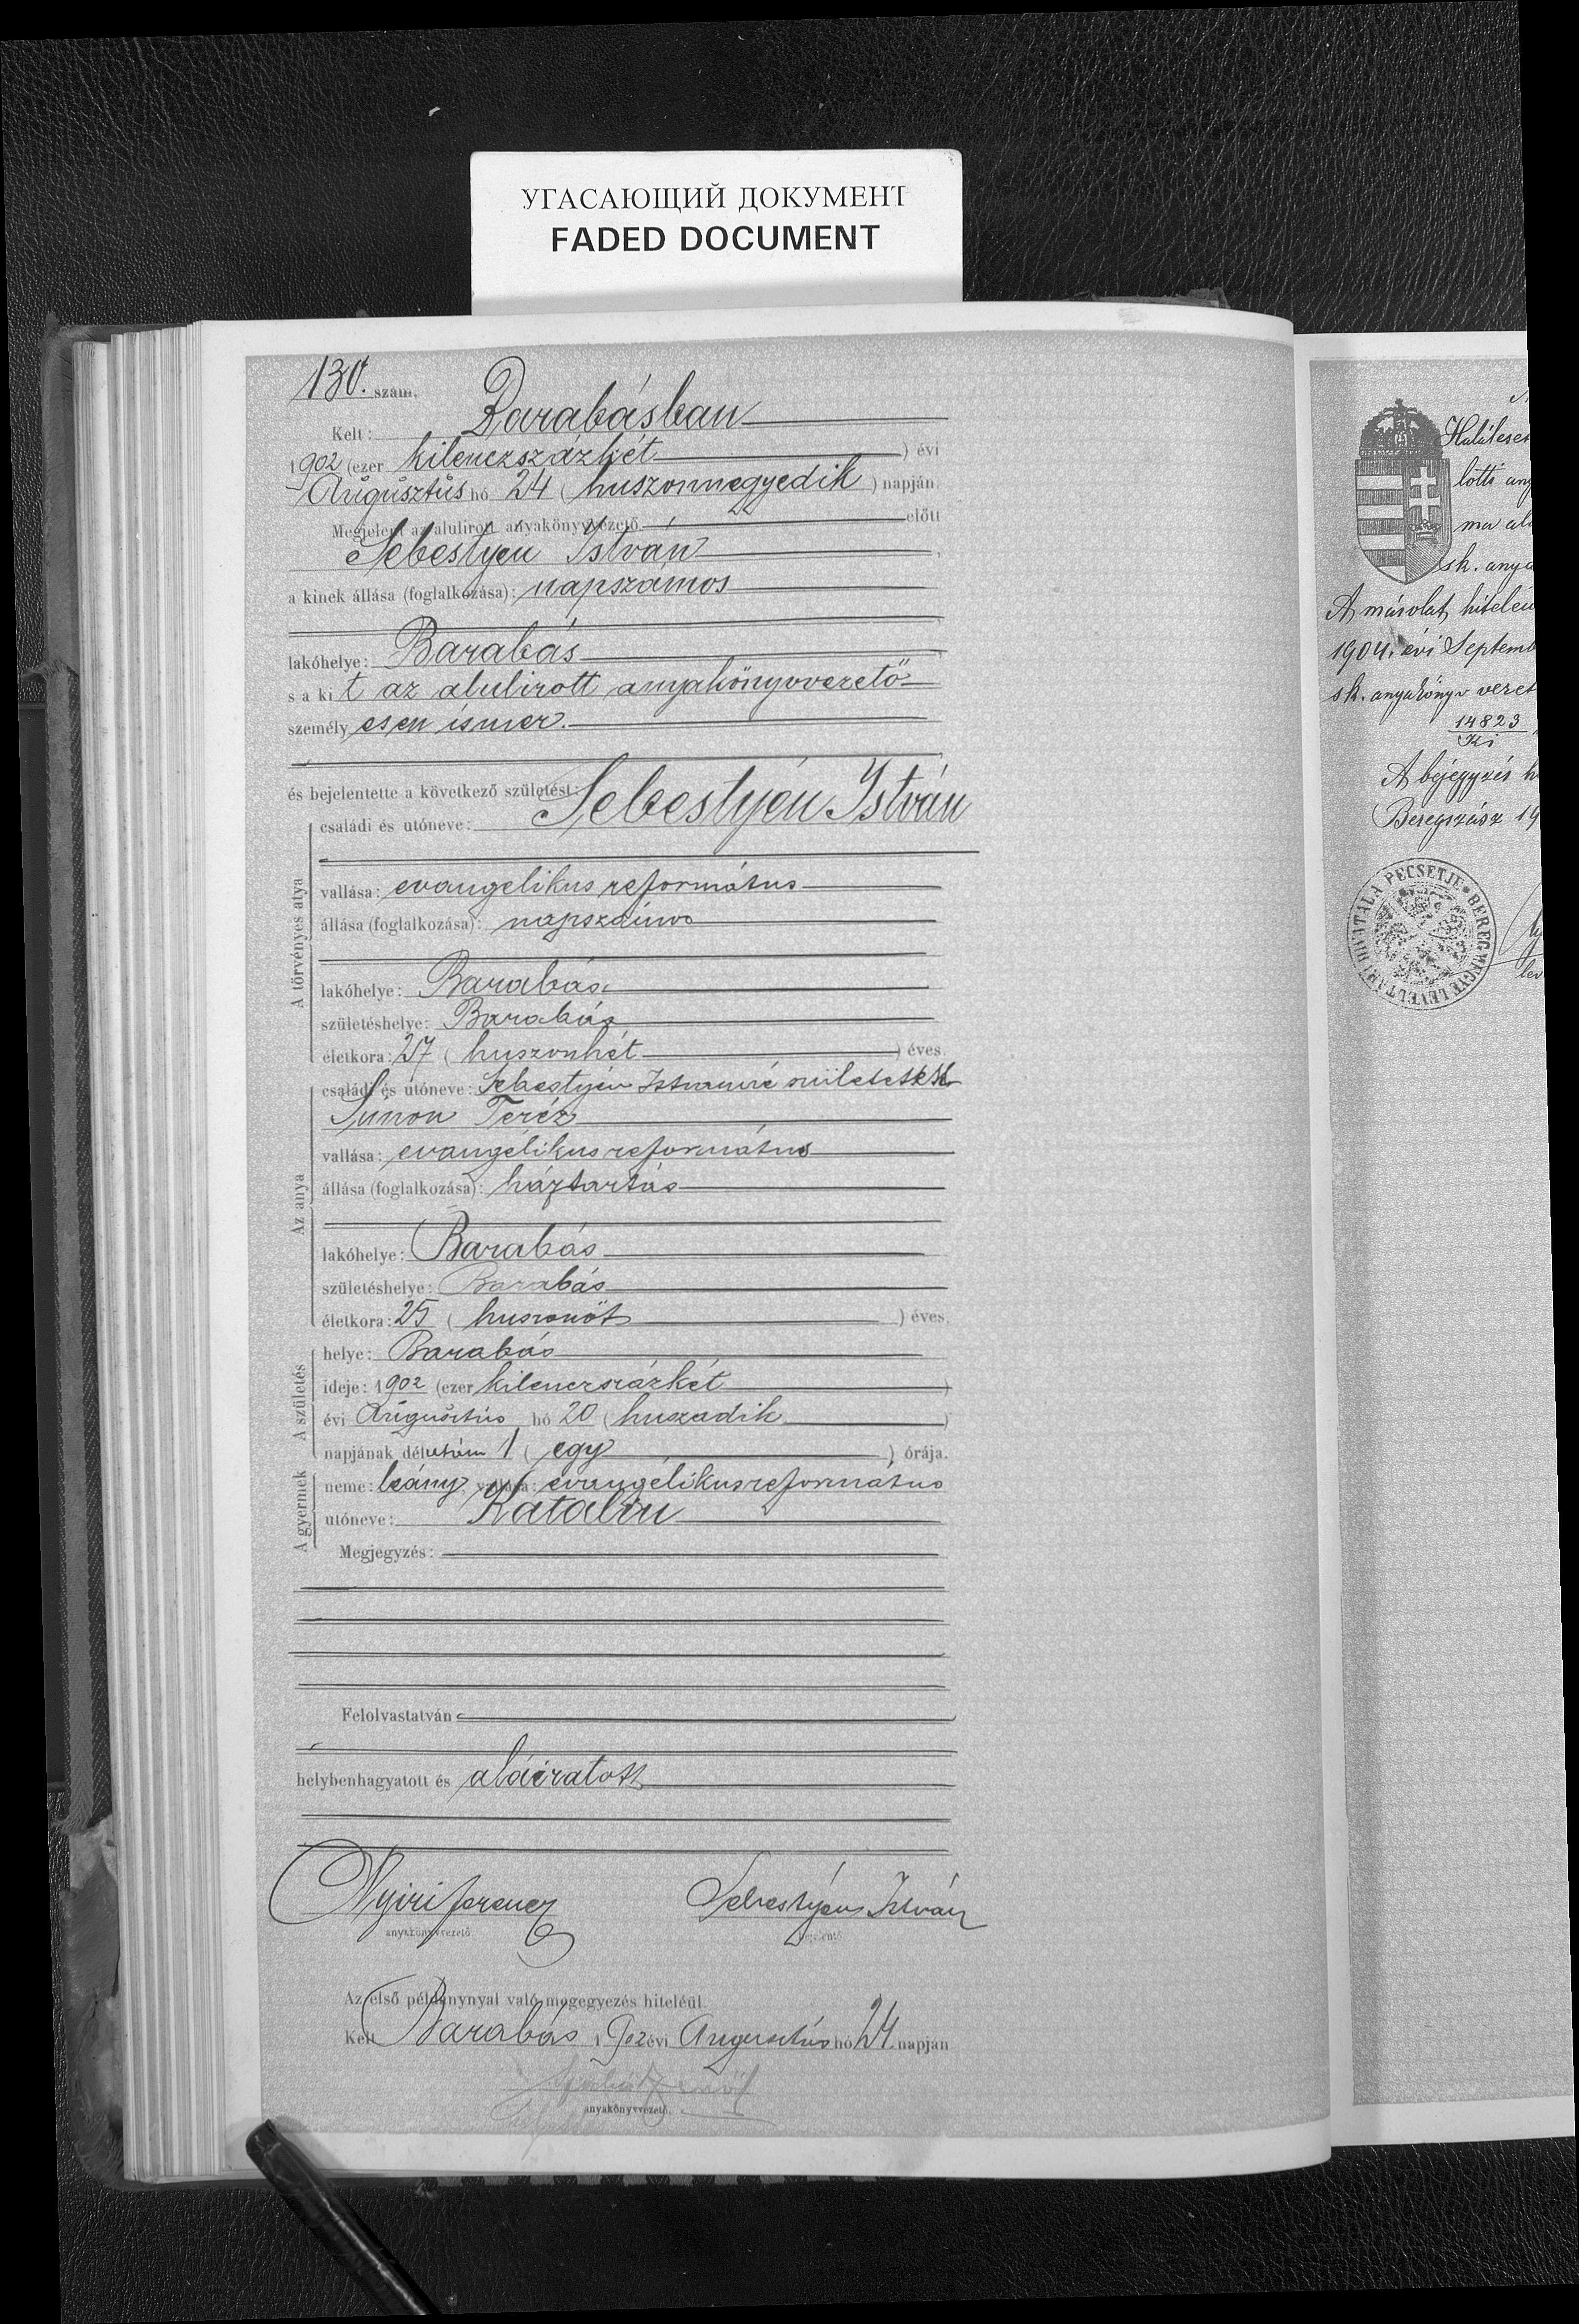 УГАСАЮЩИЙ ДОКУМЕНТ
FADED DOCUMENT
130. szám.
Kelt: Barabásban
1902 (ezer kilenczszázkét) évi
Augusztus hó 24 (huszonnegyedik) napján.
Megjelent az alulirott anyakönyvvezető előtt
Sebestyén István,
a kinek állása (foglalkozása): napszámos
lakóhelye: Barabás
s a kit az alulirott anyakönyvvezető
személyesen ismer.
és bejelentette a következő születést:
A törvényes atya
családi és utóneve: Sebestyén István
vallása: evangelikus református
állása (foglalkozása): napszámos
lakóhelye: Barabás
születéshelye: Barabás
életkora: 27 (huszonhét) éves.
Az anya
családi és utóneve: Sebestyén Istvánné született
Simon Teréz
vallása: evangélikus református
állása (foglalkozása): háztartás
lakóhelye: Barabás
születéshelye: Barabás
életkora: 25 (huszonöt) éves.
A születés
helye: Barabás
ideje: 1902 (ezer kilenczszázkét)
évi Augusztus hó 20 (huszadik)
napjának délután 1 (egy) órája.
A gyermek
neme: leány, vallása: evangélikus református
utóneve: Katalin
Megjegyzés:
Felolvastatván
helybenhagyatott és aláiratott
Nyiri Ferencz Sebestyén István
anyakönyvvezető. bejelentő.
Az első példánynyal való megegyezés hiteléül
Kelt Barabás 1902 évi Augusztus hó 24 napján
anyakönyvvezető.
Haláleset
lotti any
ma al
sk. anya
A másolat hiteleü
1904. évi Septemb
sk. anyakönyv vezet
14823
Ki
A bejegyzés h
Beregszász 19
BEREGMEGYE LEVÉLTÁRI HIVATALA PECSÉTJE
lev